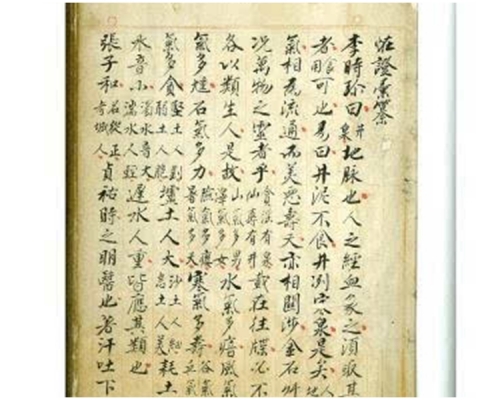 證彙纂
李時珍曰井泉地脉也人之經血象之須取其
者食用可也易曰井泥不食井冽寒泉是矣人地
氣相為流通而美惡壽夭亦相關涉金石草
况萬物之靈者乎貪淫有泉仙壽有井載在往牒必不
各以類生人是故山氣多男澤氣多女水氣多瘖風氣
氣多尰石氣多力險氣多癭暑氣多夭寒氣多壽谷氣丘氣
氣多貪堅土人剛弱土人脆壚土人大沙土人細息土人美耗土
水音小濁水音大湍水人輕遲水人重皆應其類也
張子和名從正考城人貞祐時之明醫也著汗吐下